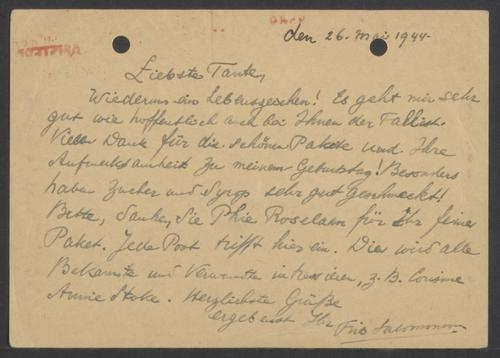 den 26. Mai 1944.
Liebste Tante,
Wiederum ein Lebenszeichen! Es geht mir sehr
gut wie hoffentlich auch bei Ihnen der Fall ist.
Vielen Dank für die schönen Pakete und Ihre
Aufmerksamkeit zu meinem Geburtstag! Besonders
haben Zucker und Syrop sehr gut geschmeckt!
Bitte, danke, Sie Phie Roselaen für Ihr feines
Paket. Jede Post trifft hier ein. Dies wird alle
Bekannte und Verwandte interessieren, z. B. Cousine
Annie Stoke. Herzlichste Grüße
ergebenst Ihr Fritz Salomonson